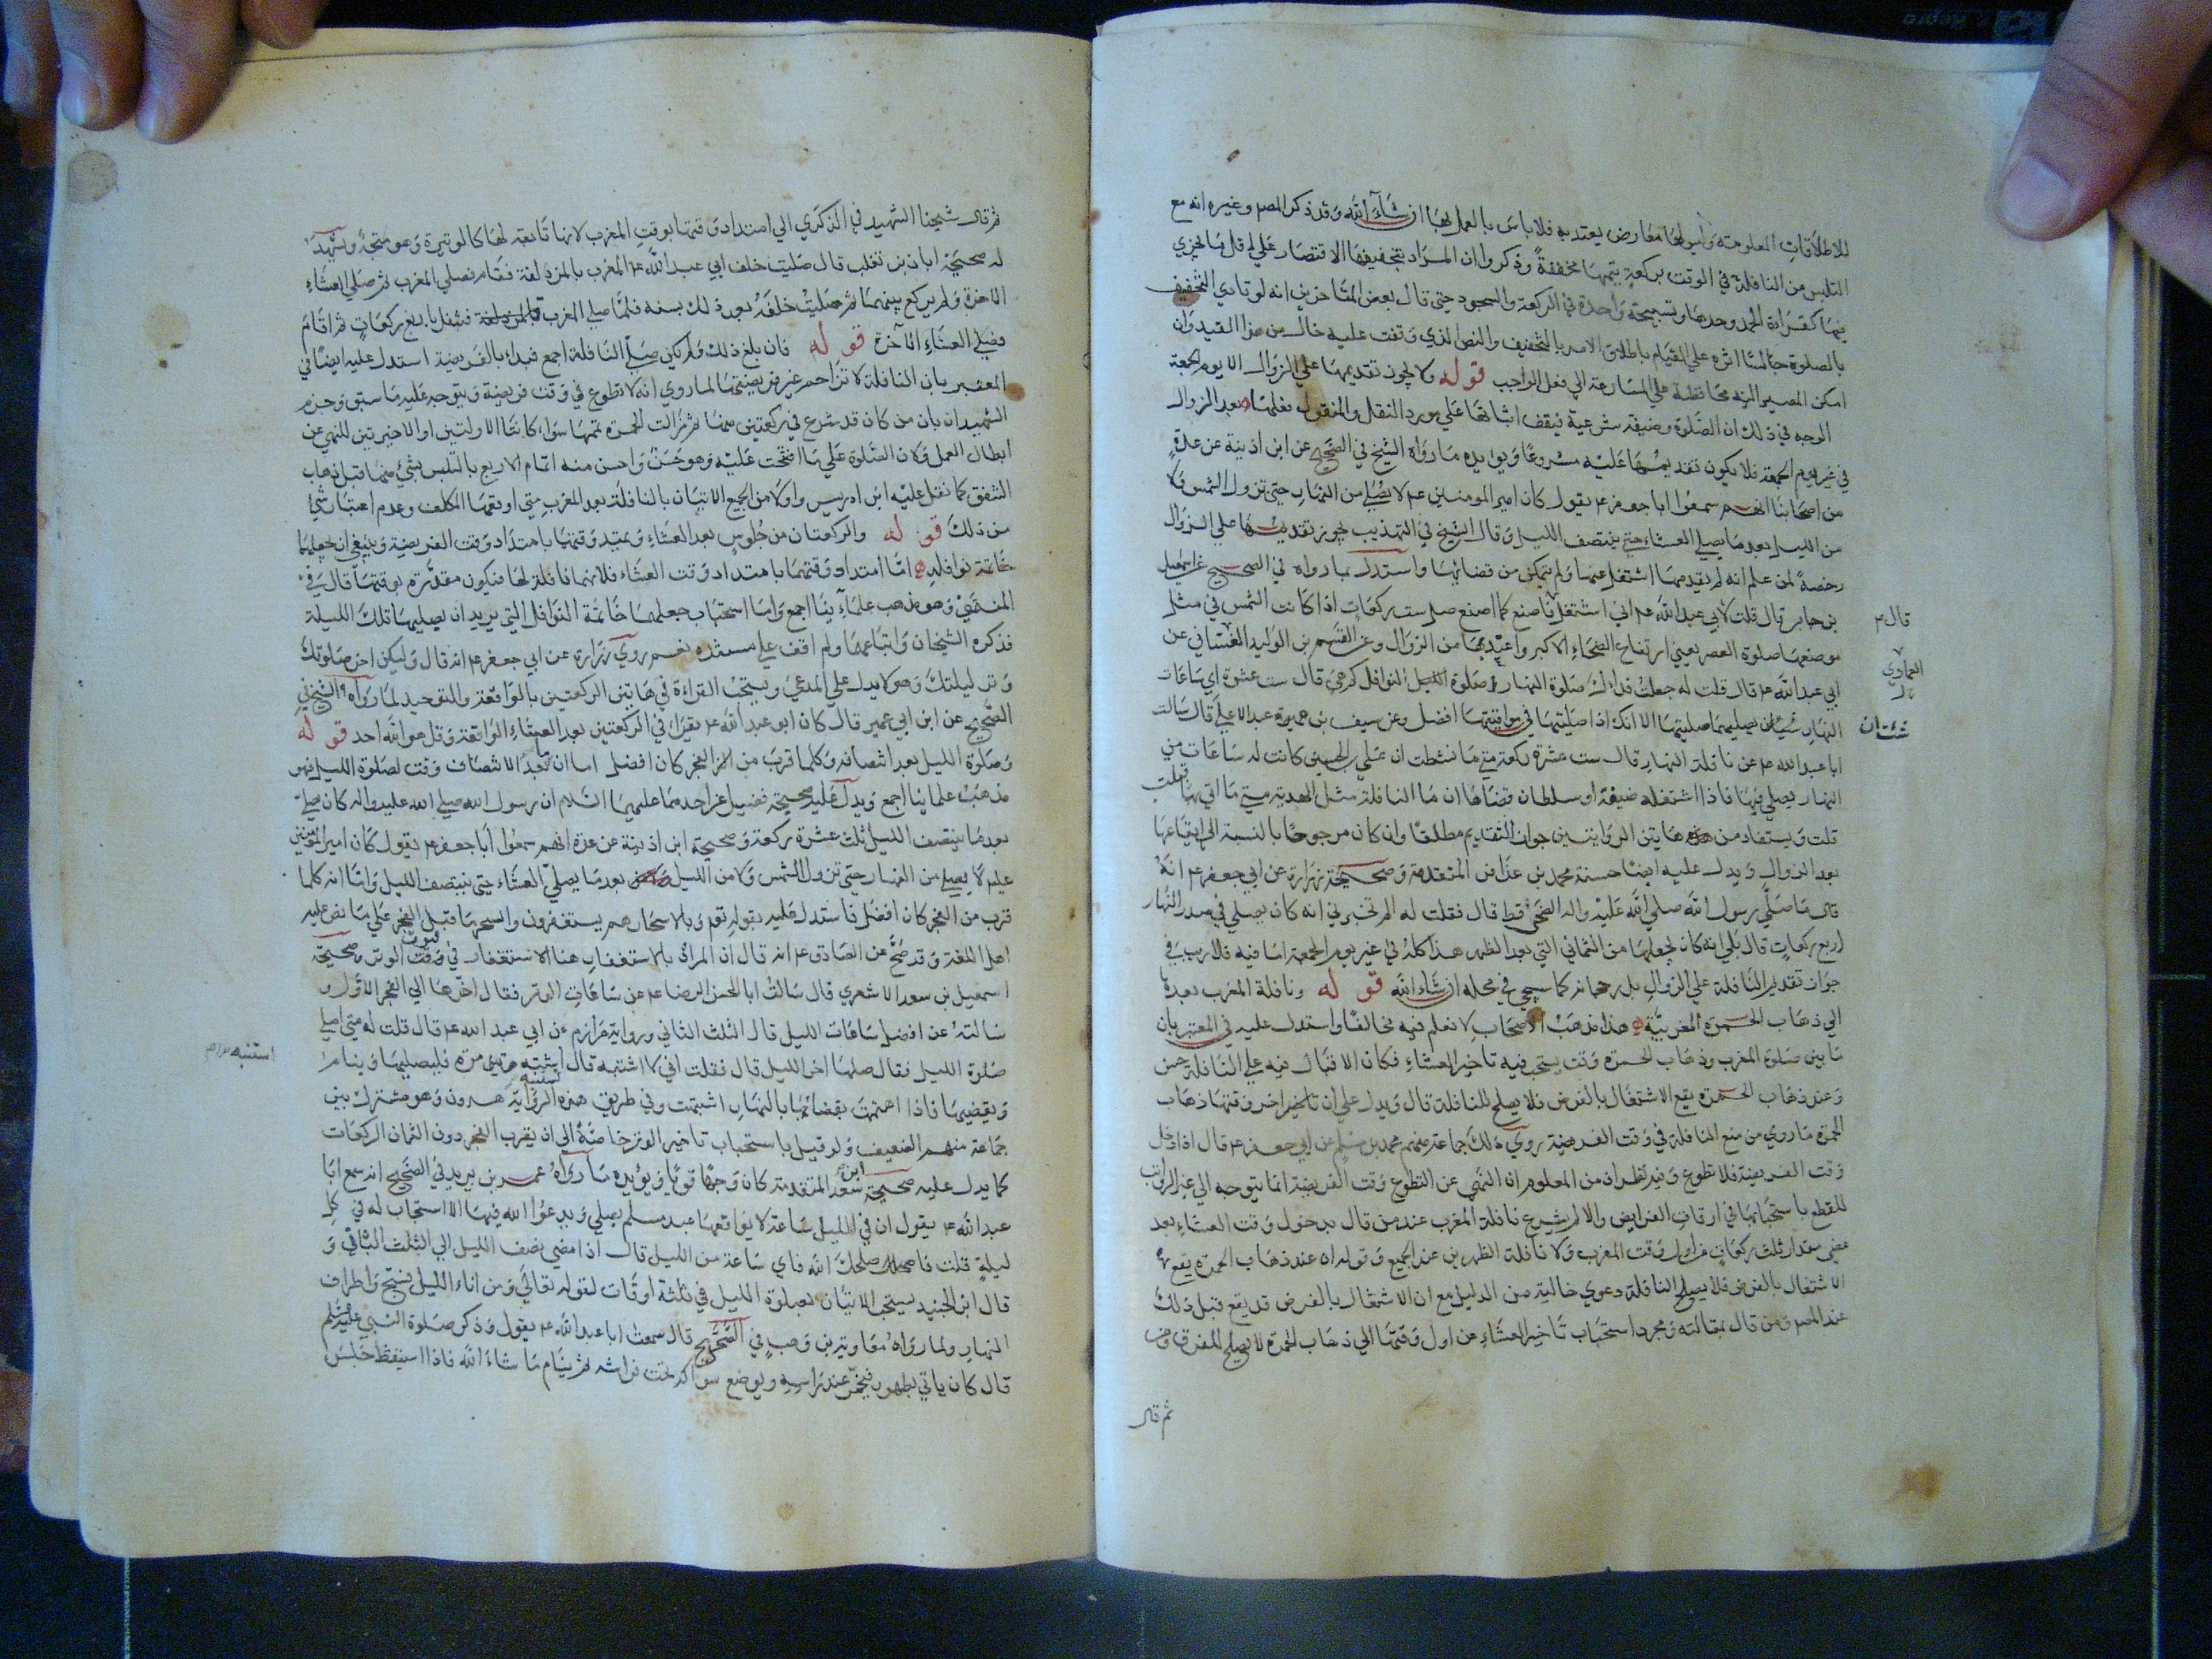 للاطلاقات المعلومة وليس لها معارض يعتد به فلا باس بالعمل بها ان شآء الله وقد ذكر المصم وغيره انه مع
التلبس من النافلة في الوقت بركعة يتمها مخففةً وذكروا ان المراد بتخفيفها الاقتصار على اقل ما يجزي
فيها كقراءة الحمد وحدها وتسبيحة واحدة في الركعة والسجود حتى قال بعض المتاخرين انه لو تادي التخفيف
بالصلوة جالسًا اثره علي القيام باطلاق الامر بالتخفيف والنص الذي وقفت عليه خال من هذا القيد وان
امكن المصير اليه محافظة علي المسارعة الي فعل الواجب قوله ولا يجوز تقديمها علي الزوال الا يوم الجمعة
الوجه في ذلك ان الصلوة وظيفة شرعية فيقف اثباتها على مورد النقل والمنقول فعلها بعد الزوال
في غير يوم الجمعة فلا يكون تقديمها عليه مشروعًا ويؤيده ما رواه الشيخ في الصحيح عن ابن اذينة عن عدة
من اصحابنا انهم سمعوا ابا جعفر ع يقول كان امير المومنين ع لا يصلي من النهار حتى تزول الشمس ولا
من الليل بعد ما يصلي العشاء حتى ينتصف الليل وقال الشيخ في التهذيب يجوز تقديمها علي الزوال
رخصةً لمن علم انه لم يقدمها اشتغل عنها ولم يتمكن من قضائها واستدل بما رواه في الصحيح عن اسمعيل
بن جابر قال قلت لابي عبد الله ع اني اشتغل قال فاصنع كما اصنع صل ست ركعات اذا كانت الشمس في مثل
قال ع
موضعها صلوة العصر يعني ارتفاع الضحاء الاكبر واعتد بها من الزوال وعن القسم بن الوليد الغساني عن
العماري
ابي عبد الله ع قال قلت له جعلت فداك صلوة النهار صلوة النوافل كم هي قال ست عشرة اي ساعات
النهار شئت ان يصليها صليتها الا انك اذا صليتها في مواقيتها افضل وعن سيف بن عميرة عبد الاعلي قال سالت
شئت ان
ابا عبد الله ع عن نافلة النهار قال ست عشرة ركعة متي ما نشطت ان علي بن الحسين كانت له ساعات من
النهار يصلي فيها فاذا اشتغله ضيعة او سلطان قضاها ان ما النافلة مثل الهدية متي ما اتي بها قبلت
قلت ويستفاد من هاتين الروايتين جواز التقديم مطلقًا وان كان مرجوحًا بالنسبة الي ايقاعها
بعد الزوال ويدل عليه ايضًا حسنة محمد بن عذافر المتقدمة وصحيحة زرارة عن ابي جعفر ع انه
قال ما صلي رسول الله صلي الله عليه واله الضحي قط قال فقلت له الم تخبرني انه كان يصلي في صدر النهار
اربع ركعات قال بلي انه كان يجعلها من الثماني التي بعد الظهر هذا كله في غير يوم الجمعة اما فيه فلا ريب في
جواز تقديم النافلة علي الزوال بل رجحانه كما سيجي في محله ان شاء الله قوله ونافلة المغرب بعدها
الي ذهاب الحمرة المغربية هذا مذهب الاصحاب لا نعلم فيه مخالفًا واستدل عليه في المعتبر بان
ما بين صلوة المغرب وذهاب الحمرة وقت يستحب فيه تاخير العشاء فكان الاقبال فيه علي النافلة حسن
وعند ذهاب الحمرة يقع الاشتغال بالفرض فلا يصلح للنافلة قال ويدل علي ان اخر وقتها ذهاب
الحمرة ما روي من منع النافلة في وقت الفريضة روي ذلك جماعة منهم محمد بن مسلم عن ابي جعفر ع قال اذا دخل
وقت الفريضة فلا تطوع وفيه نظر اذ من المعلوم ان النهي عن التطوع وقت الفريضة انما يتوجه الي غير الرواتب
للقطع باستحبابها في اوقات الفرايض والا لم يشرع نافلة المغرب عند من قال بدخول وقت العشاء بعد
مضي مقدار ثلث ركعات من اول وقت المغرب ولا نافلة الظهرين عند الجميع وقوله ان عند ذهاب الحمرة يقع
الاشتغال بالفرض فلا يصلح النافلة دعوي خالية من الدليل مع ان الاشتغال بالفرض قد يقع قبل ذلك
عند المصم ومن قال بمقالته ومجرد استحباب تاخير العشاء عن اول وقتها الي ذهاب الحمرة لا يصلح للفرق ومن
ثم قال
ثم قال شيخنا الشهيد في الذكري الي امتداد وقتها بوقت المغرب لانها تابعة لها كالوتيرة وهو متجه ويشهد
له صحيحة ابان بن تغلب قال صليت خلف ابي عبد الله ع المغرب بالمزدلفة فقام فصلي المغرب ثم صلي العشاء
الاخرة ولم يركع بينهما ثم صليت خلفه بعد ذلك بسنة فلما صلي المغرب قام فتنفل باربع ركعات ثم اقام
فصلي العشاء الآخرة قوله فان بلغ ذلك ولم يكن صلي النافلة اجمع فبدا بالفريضة استدل عليه ايضًا في
المعتبر بان النافلة لا تزاحم غير فريضتها لما روي انه لا تطوع في وقت فريضة ويتوجه عليه ما سبق وجزم
الشهيدان بان من كان قد شرع في ركعتين منها ثم زالت الحمرة يتمها سواء كانتا الاولتين او الاخيرتين للنهي عن
ابطال العمل ولان الصلوة علي ما افتتحت عليه وهو حسن واحسن منه اتمام الاربع بالتلبس بشيء منها قبل ذهاب
الشفق كما نقل عليه ابن ادريس واولا من الجميع الاتيان بالنافلة بعد المغرب متي اوقعها المكلف وعدم اعتبار شيء
من ذلك قوله والركعتان من جلوس بعد العشاء ويمتد وقتها بامتداد وقت الفريضة وينبغي ان يجعلهما
خاتمة نوافله اما امتداد وقتهما بامتداد وقت العشاء فلانهما نافلة لها فيكون مقدرة بوقتها قال في
المنتهي وهو مذهب علمائنا اجمع واما استحباب جعلهما خاتمة النوافل التي يريد ان يصليها تلك الليلة
فذكره الشيخان واتباعهما ولم اقف علي مستنده نعم روي زرارة عن ابي جعفر ع انه قال وليكن اخر صلوتك
وتر ليلتك وهو لا يدل علي المدعي ويستحب القراءة في هاتين الركعتين بالواقعة والتوحيد لما رواه الشيخ في
الصحيح عن ابن ابي عمير قال كان ابو عبد الله ع يقرا في الركعتين بعد العشاء الواقعة وقل هو الله احد قوله
وصلوة الليل بعد انتصافه وكلما قرب من الفجر كان افضل اما ان بعد الانتصاف وقت لصلوة الليل فهو
مذهب علمائنا اجمع ويدل عليه صحيحة فضيل عن احدهما عليهما السلام ان رسول الله صلي الله عليه واله كان يصلي
بعد ما ينتصف الليل ثلث عشرة ركعة وصحيحة ابن اذينة عن عدة انهم سمعوا ابا جعفر ع يقول كان امير المؤمنين
عليلم لا يصلي من النهار حتى تزول الشمس ولا من الليل بعد ما يصلي العشاء حتى ينتصف الليل واما انه كلما
قرب من الفجر كان افضل فاستدل عليه بقوله تع وبالاسحار هم يستغفرون والسحر ما قبل الفجر علي ما نص عليه
اهل اللغة وقد صح عن الصادق ع انه قال ان المراد بالاستغفار هنا الاستغفار في قنوت الوتر وصحيحة
اسمعيل بن سعد الاشعري قال سالت ابا الحسن الرضا ع عن ساعات الوتر فقال احبها الي الفجر الاول و
سالته عن افضل ساعات الليل قال الثلث الثاني ورواية مرازم عن ابي عبد الله ع قال قلت له متي اصلي
صلوة الليل فقال صلها اخر الليل قال فقلت اني لا انتبه قال تنتبه مرة فيصليها وينام
استنبه
ويقضيها فاذا اهتممت بقضائها بالنهار انتبهت وفي طريق هذه الرواية هرون وهو مشترك بين
جماعة منهم الضعيف ولو قيل باستحباب تاخير الوتر خاصة الي ان يقرب الفجر دون الثمان الركعات
كما يدل عليه صحيحة ابن سعد المتقدمة كان وجهًا قويًا ويؤيده ما رواه عمر بن يزيد في الصحيح انه سمع ابا
عبد الله ع يقول ان في الليل ساعة لا يوافقها عبد مسلم يصلي ويدعوا الله فيها الا استجاب له في كل
ليلة قلت فاصلحك الله فاي ساعة من الليل قال اذا مضي نصف الليل الي الثلث الباقي و
قال ابن الجنيد يستحب الاتيان بصلوة الليل في ثلثة اوقات لقوله تعالي ومن اناء الليل فسبح واطراف
النهار ولما رواه معاوية بن وهب في الصحيح قال سمعت ابا عبد الله ع يقول وذكر صلوة النبي
قال كان ياتي بطهور فيخمر عند راسه ويوضع سواكه تحت فراشه ثم ينام ما شاء الله فاذا استيقظ جلس